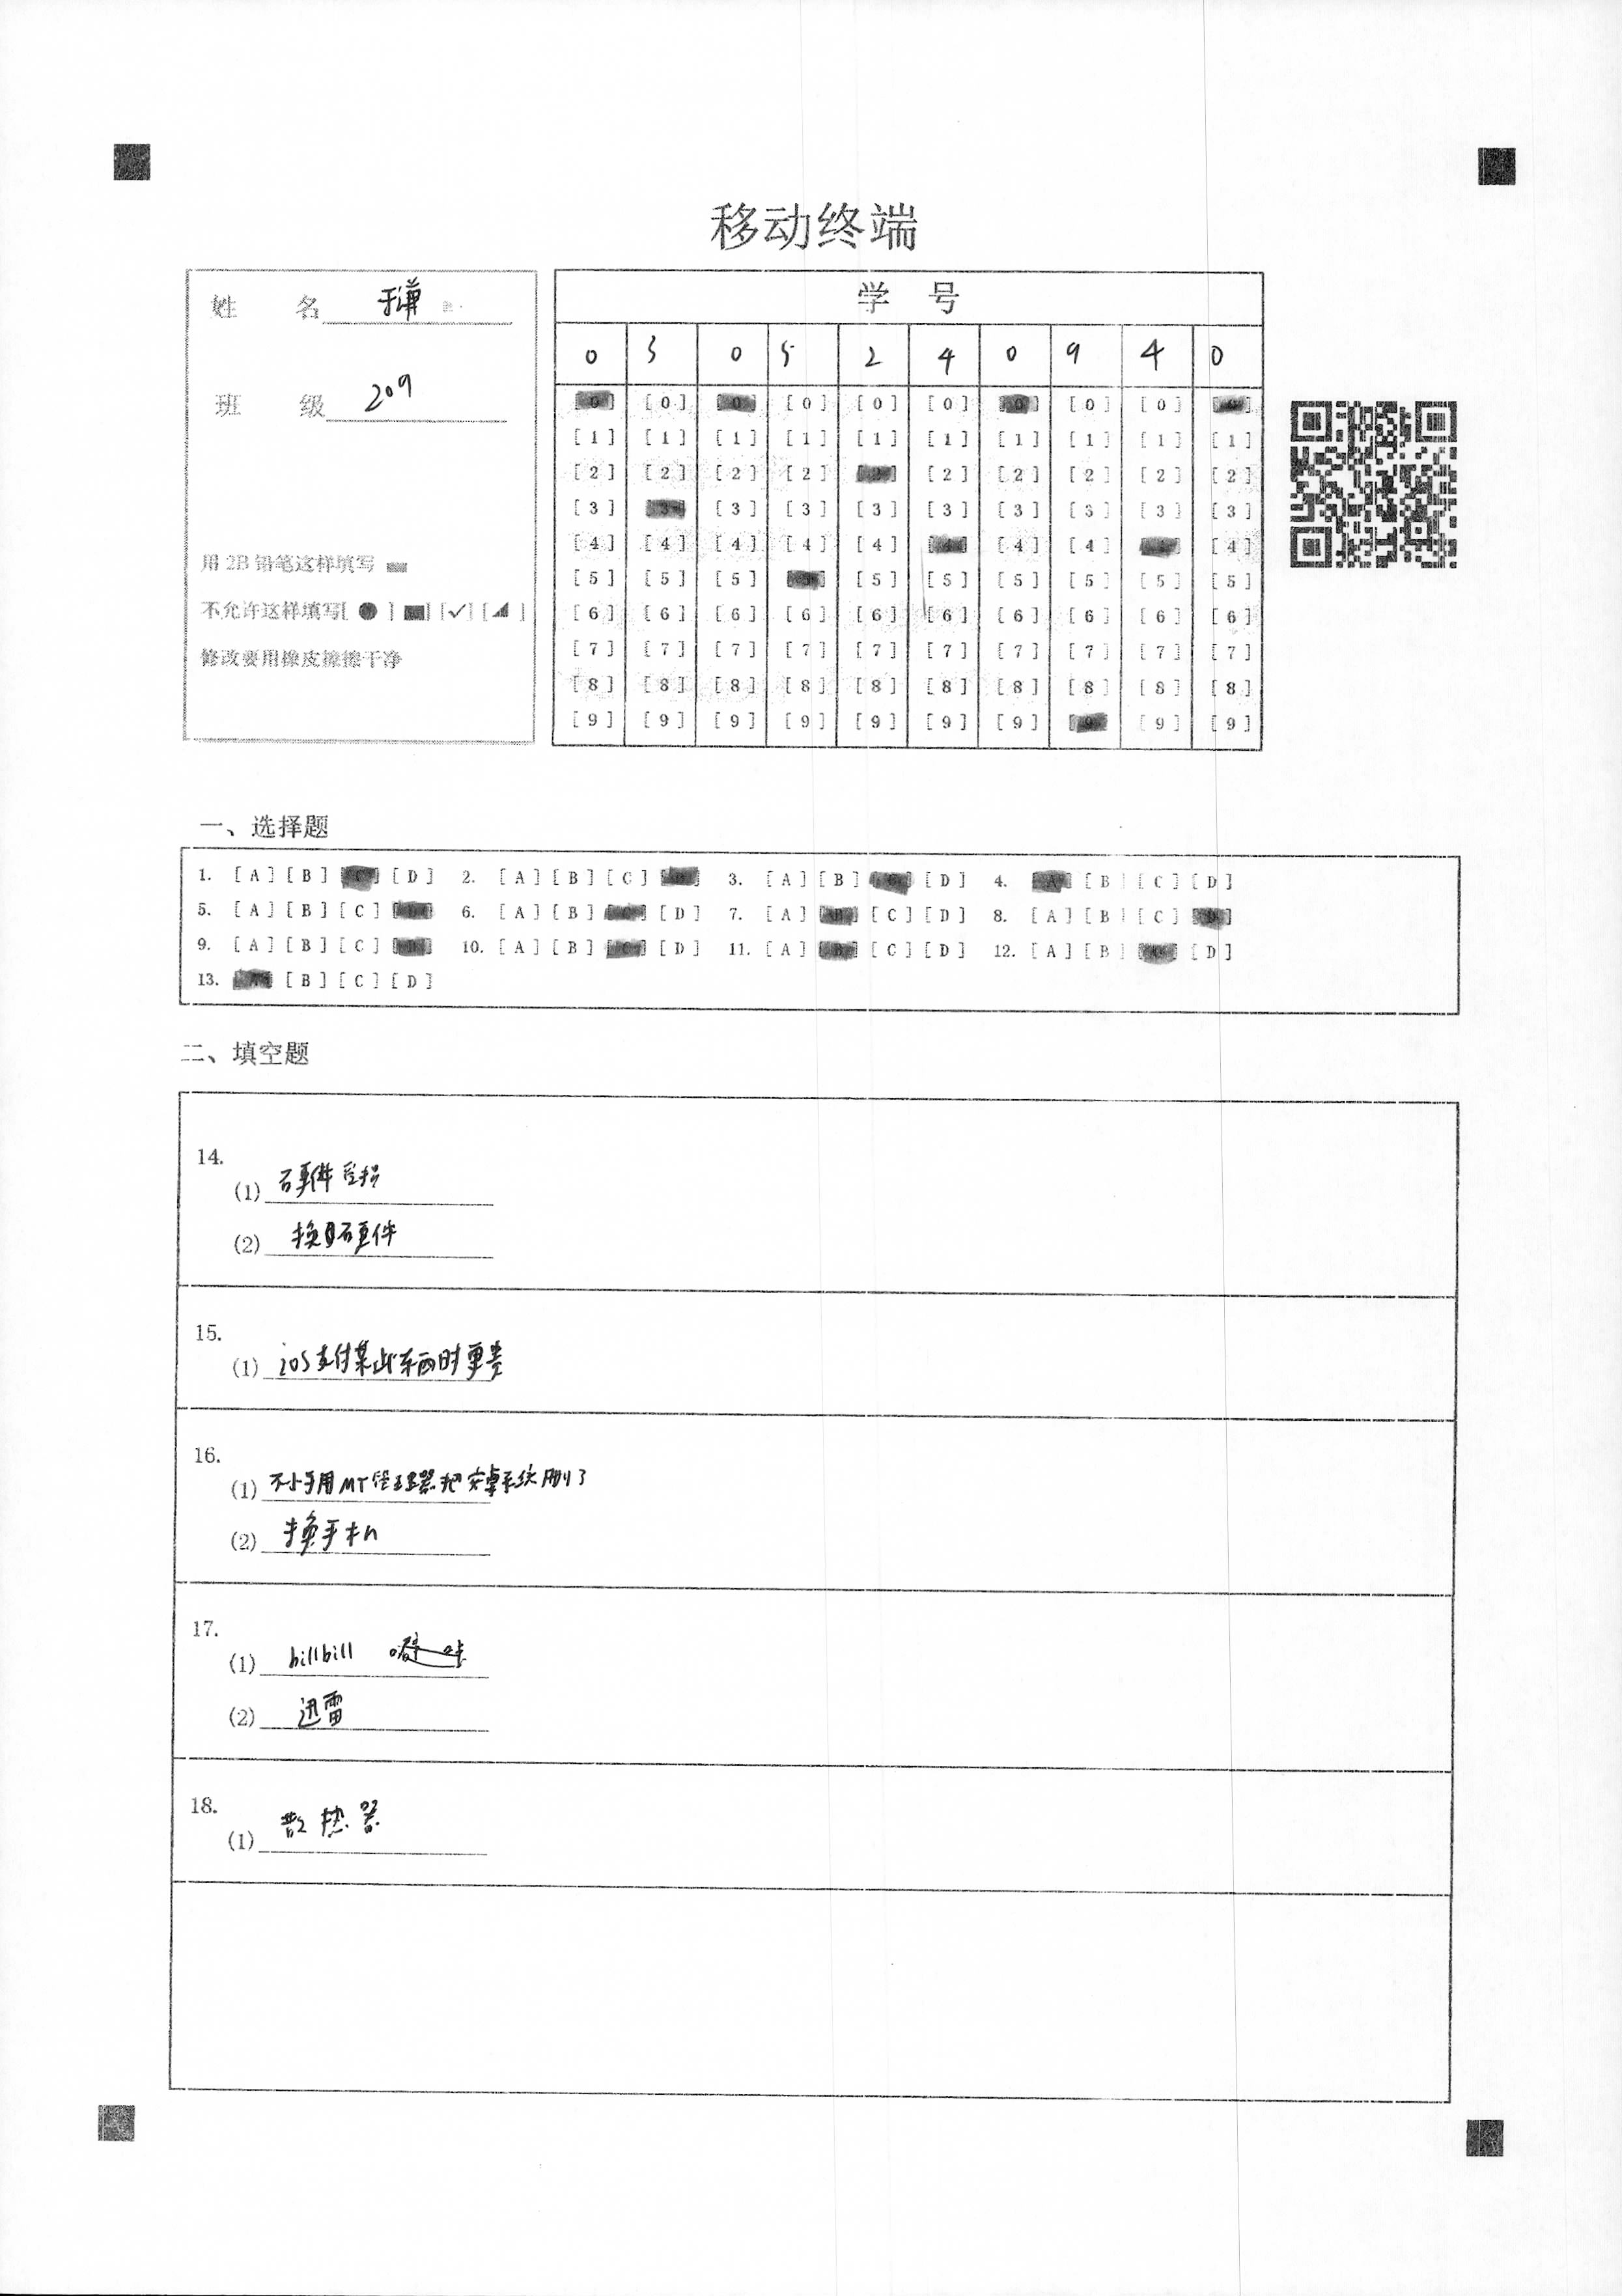 移动终端
姓 名 于潇
班 级 209
用 2B 铅笔这样填写
不允许这样填写[ ● ] [■] [✓] [◢ ]
修改要用橡皮擦擦干净
学 号
0 3 0 5 2 4 0 9 4 0
[0] [0] [0] [0] [0] [0] [0] [0] [0] [0]
[1] [1] [1] [1] [1] [1] [1] [1] [1] [1]
[2] [2] [2] [2] [2] [2] [2] [2] [2] [2]
[3] [3] [3] [3] [3] [3] [3] [3] [3] [3]
[4] [4] [4] [4] [4] [4] [4] [4] [4] [4]
[5] [5] [5] [5] [5] [5] [5] [5] [5] [5]
[6] [6] [6] [6] [6] [6] [6] [6] [6] [6]
[7] [7] [7] [7] [7] [7] [7] [7] [7] [7]
[8] [8] [8] [8] [8] [8] [8] [8] [8] [8]
[9] [9] [9] [9] [9] [9] [9] [9] [9] [9]
一、选择题
1. [A] [B] [C] [D] 2. [A] [B] [C] [D] 3. [A] [B] [C] [D] 4. [A] [B] [C] [D]
5. [A] [B] [C] [D] 6. [A] [B] [C] [D] 7. [A] [B] [C] [D] 8. [A] [B] [C] [D]
9. [A] [B] [C] [D] 10. [A] [B] [C] [D] 11. [A] [B] [C] [D] 12. [A] [B] [C] [D]
13. [A] [B] [C] [D]
二、填空题
14.
(1) 硬件受损
(2) 换硬件
15.
(1) ios支付某些东西时更贵
16.
(1) 不小手用MT管理器把安卓系统删了
(2) 换手机
17.
(1) billbill
(2) 迅雷
18.
(1) 散热器